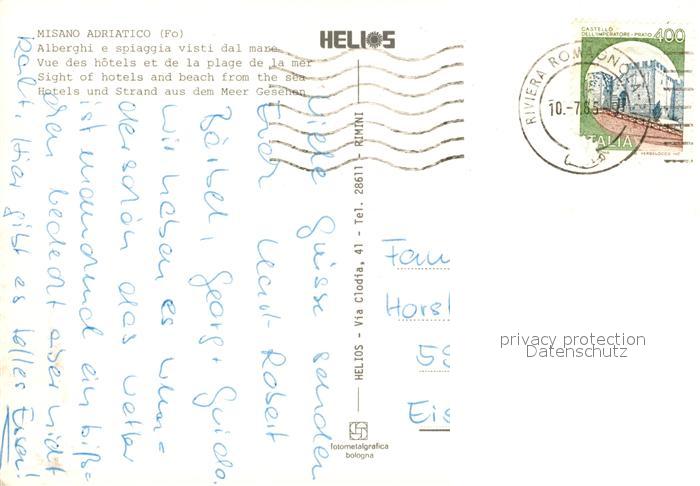 MISANO ADRIATICO (Fo)
Alberghi e spiaggia visti dal mare
Vue des hôtels et de la plage de la mer
Sight of hotels and beach from the sea
Hotels und Strand aus dem Meer Gesehen
HELIOS
CASTELLO
DELL'IMPERATORE - PRATO
400
ITALIA
RIVIERA ROMAGNOLA
10.-7.8
HELIOS - Via Clodia, 41 - Tel. 28611 - RIMINI
fotometalgrafica
bologna
Viele Grüsse senden
Euch
Bärbel, Georg + Guido.
Wir haben es wun=
derschön das Wetter
ist manchmal ein biß=
chen bedeckt aber nicht
kalt. Hier gibt es tolles Essen!
Fam
Horst
Eis
privacy protection
Datenschutz